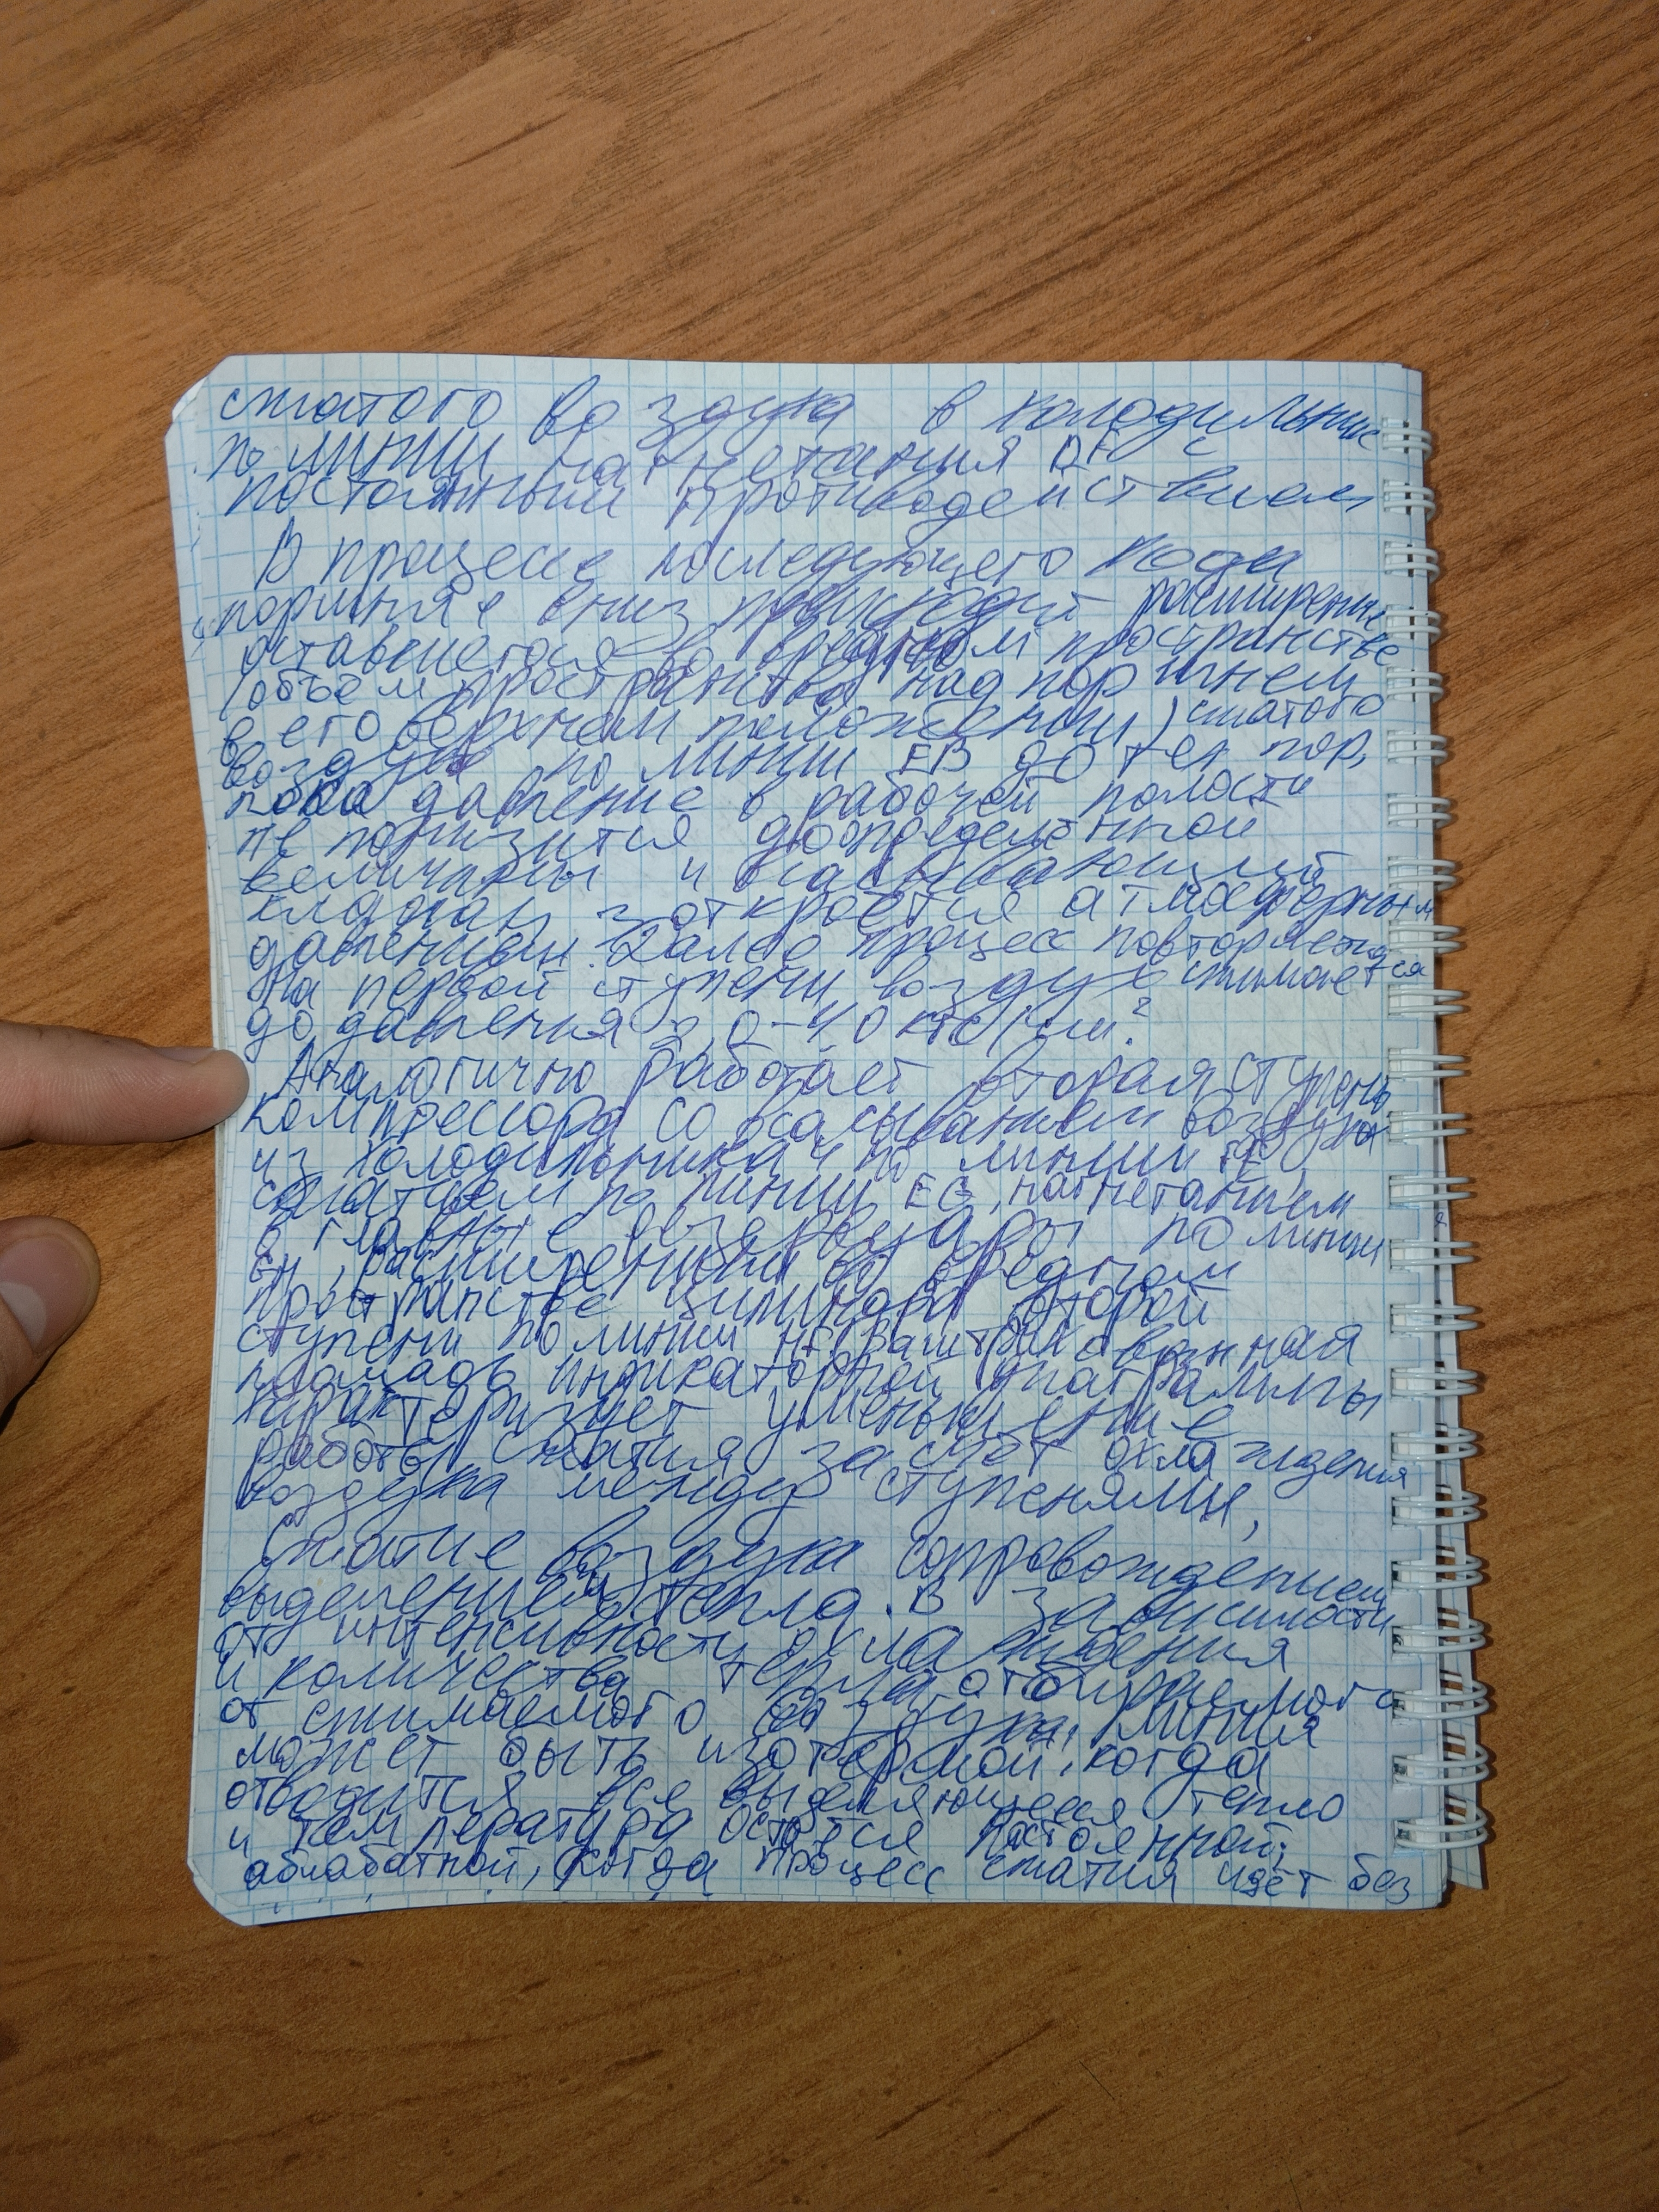 сжатого воздуха в холодильник
по линии нагнетания DF с
постоянным противодействием
В процессе последующего хода
поршня вниз происходит расширение
оставшегося во вредном пространстве
(объём пространства над поршнем
в его верхнем положении) сжатого
воздуха по линии EB до тех пор,
пока давление в рабочей полости
не понизится до определённой
величины и всасывающий
клапан откроется атмосферным
давлением. Далее процесс повторяется
На первой ступени воздух сжимается
до давления 2,0-4,0 кгс/см²
Аналогично работает вторая ступень
компрессора со всасыванием воздуха
из холодильника 4 по линии FE,
сжатием по линии EG, нагнетанием
в главные резервуары по линии
GH, расширением во вредном
пространстве цилиндра второй
ступени по линии HF. Заштрихованная
площадь индикаторной диаграммы
характеризует уменьшение
работы сжатия за счёт охлаждения
воздуха между ступенями,
Сжатие воздуха сопровождением
выделением тепла. В зависимости
от интенсивности охлаждения
и количества тепла отбираемого
от сжимаемого воздуха, линия
может быть изотермой, когда
отводится все выделяющееся тепло
и температура остаётся постоянной;
адиабатной, когда процесс сжатия идёт без